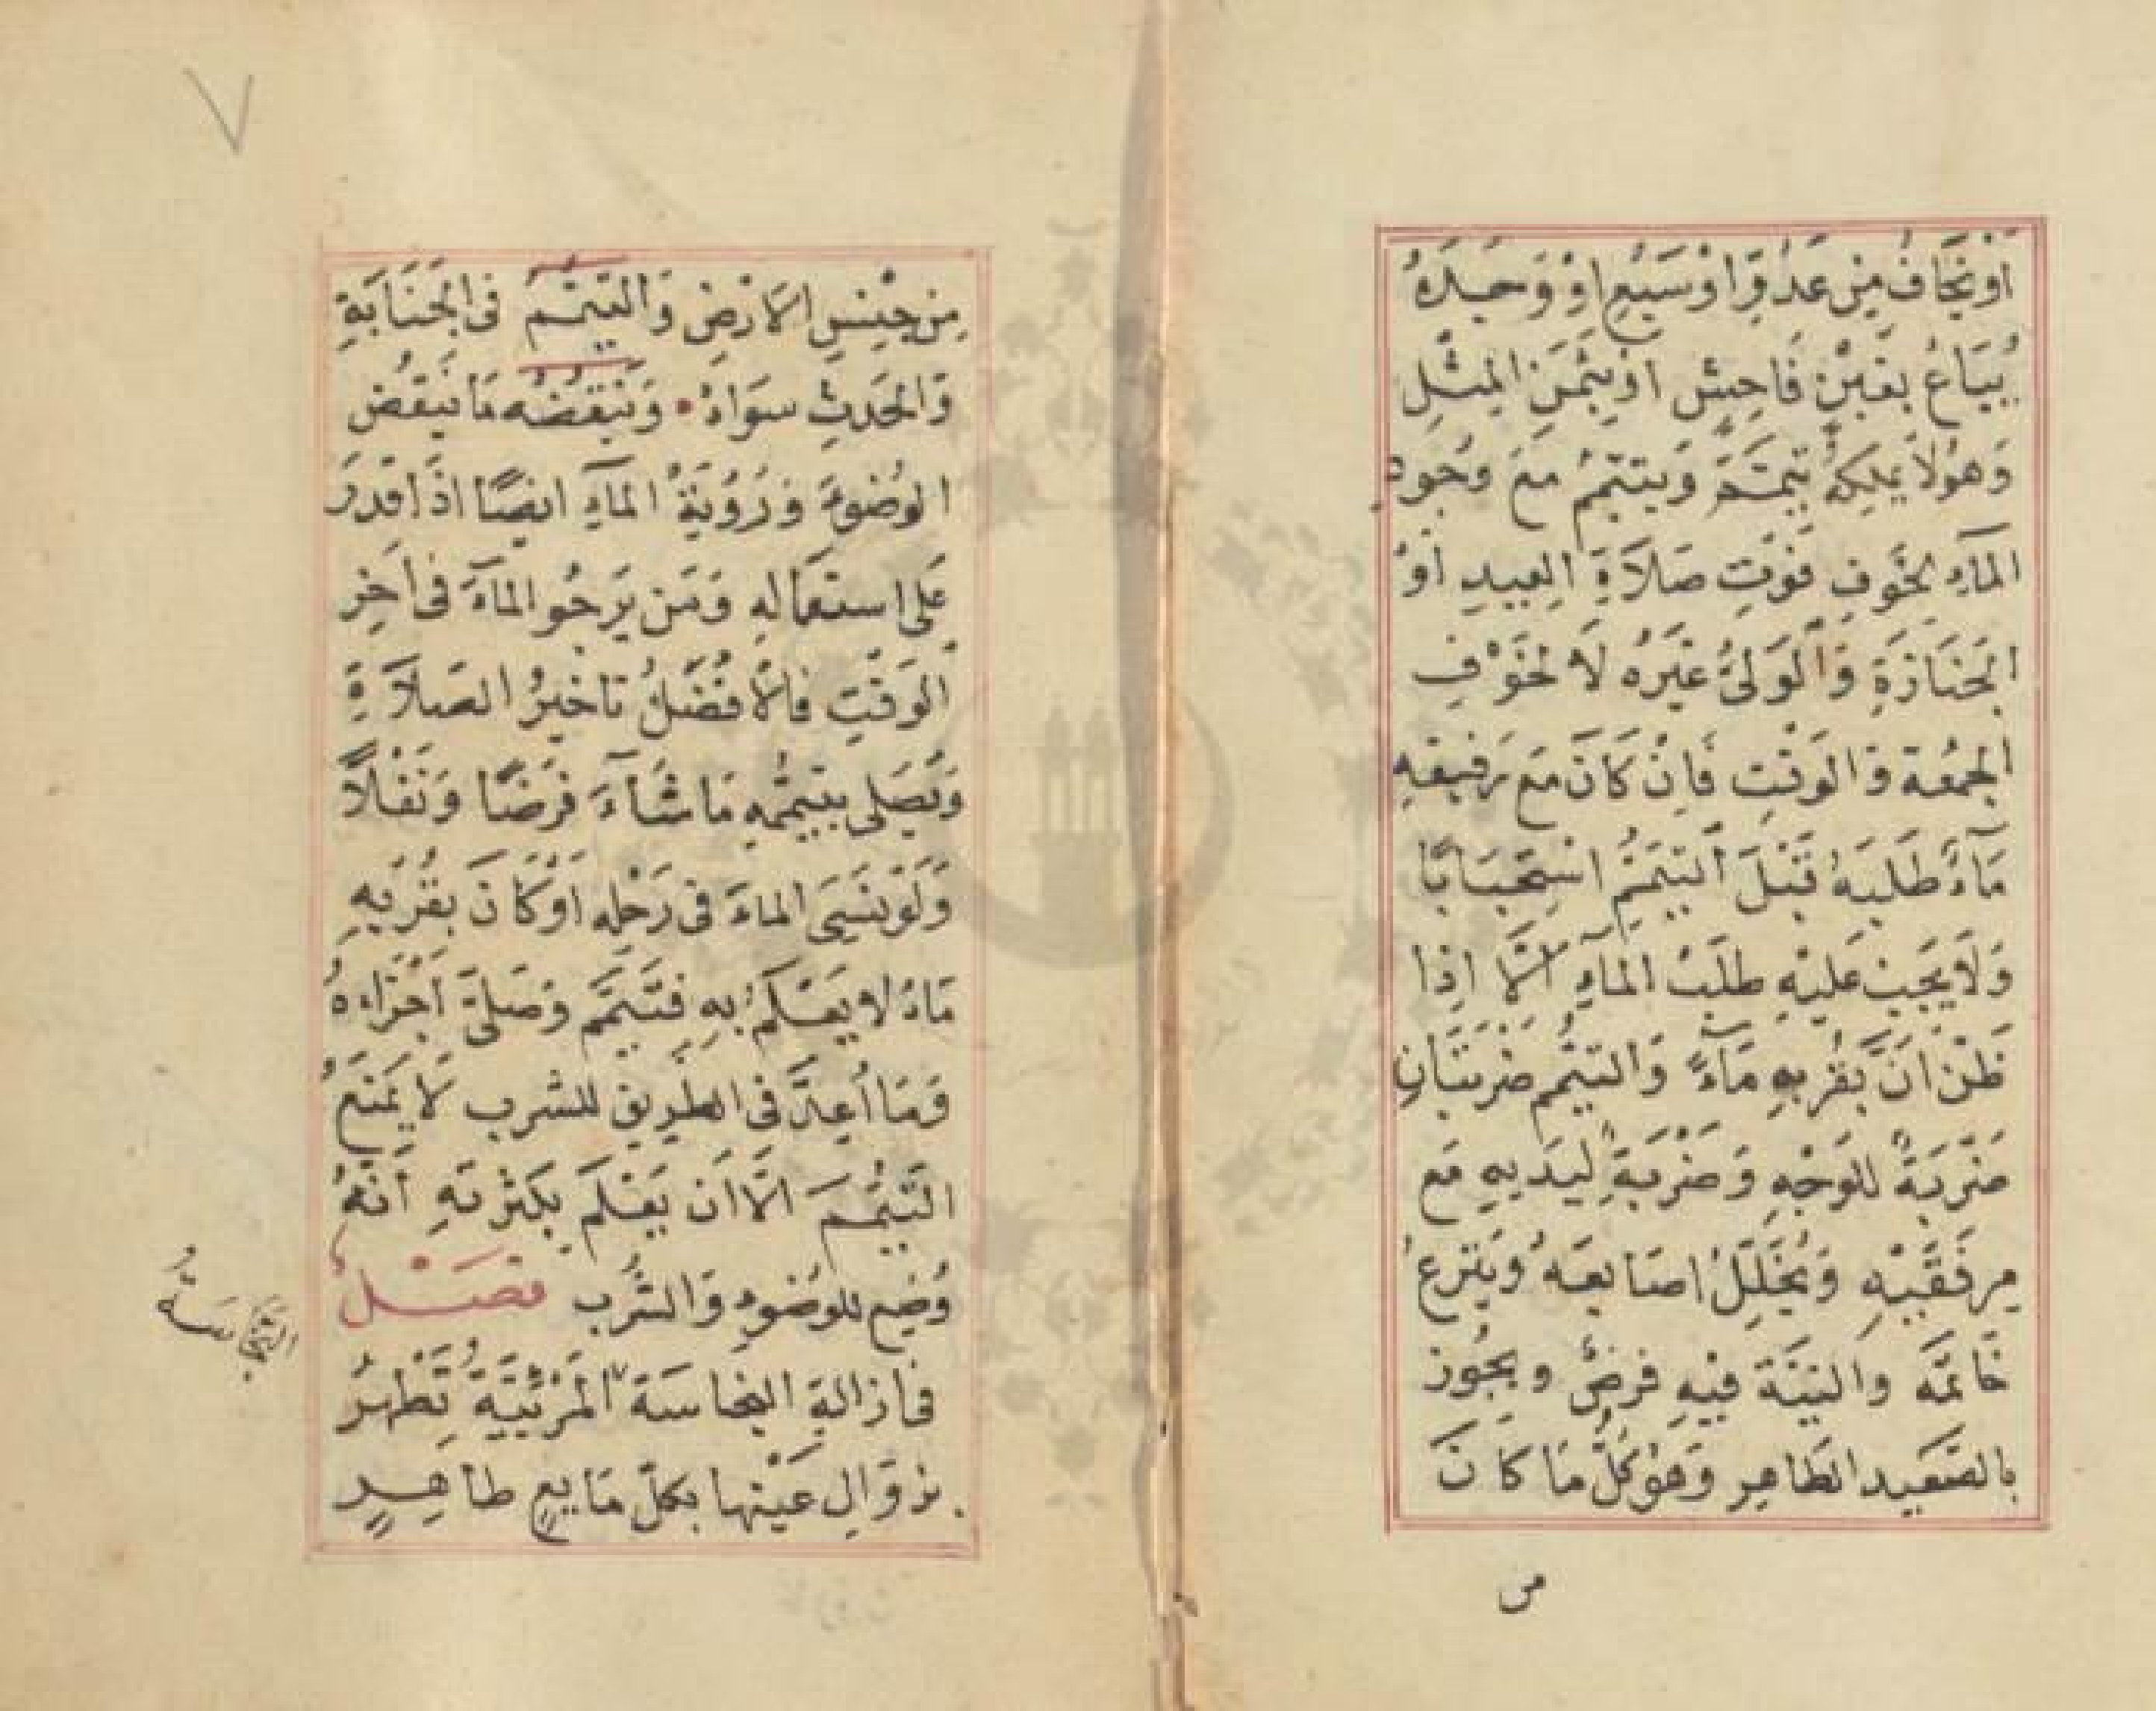 اَوْ يَخَافُ مِنْ عَدُوٍّ اَوْ سَبُعٍ اَوْ وَجَدَهُ
يُبَاعُ بِغَبْنٍ فَاحِشٍ اَوْ بِثَمَنِ الْمِثْلِ
وَهُوَ لَا يَمْلِكُهُ تَيَمَّمَ وَيَتَيَمَّمُ مَعَ وُجُودِ
الْمَآءِ لِخَوْفِ فَوْتِ صَلَاةِ الْعِيدِ اَوْ
الْجَنَازَةِ وَالْوَلِىُّ غَيْرُهُ لَا لِخَوْفِ
الْجُمُعَةِ وَالْوَقْتِ فَاِنْ كَانَ مَعَ رَفِيقِهِ
مَآءٌ طَلَبَهُ قَبْلَ التَّيَمُّمِ اسْتِحْبَابًا
وَلَا يَجِبُ عَلَيْهِ طَلَبُ الْمَآءِ اِلَّا اِذَا
ظَنَّ اَنَّ بِقُرْبِهِ مَآءً وَالتَّيَمُّمُ ضَرْبَتَانِ
ضَرْبَةً لِلْوَجْهِ وَضَرْبَةً لِيَدَيهِ مَعَ
مِرفَقَيْهِ وَيُخَلِّلُ اصَابِعَهُ وَيَنْزِعُ
خَاتَمَهُ وَالنِّيَّةُ فِيْهِ فَرضٌ وَيَجُوز
بِالصَّعِيدِ الطَّاهِرِ وَهُوَ كُلُّ مَا كَانَ
من
٧
مِن جِنْسِ الْاَرْضِ وَالتَّيَمُّمُ فِى الْجَنَابَةِ
وَالْحَدَثِ سَوَاءٌ • وَيَنْقُضُهُ مَا يَنْقُضُ
الوُضُوءَ وَرُؤْيَةُ الْمَآءِ اَيْضًا اِذَا قَدَرَ
عَلَى اسْتِعْمَالِهِ وَمَن يَرْجُو الْمَآءَ فِى اَخِرِ
الْوَقْتِ فَالْاَفْضَلُ تَاخِيرُ الصَّلَاةِ
وَيُصَلِّى بِتَيَمُّمِهِ مَا شَآءَ فَرْضًا وَنَفْلًا
وَلَوْ نَسِىَ الْمَاءَ فِى رَحْلِهِ اَوْ كَانَ بِقُرْبِهِ
مَاءٌ لا يَعْلَمُ بِهِ فَتَيَمَّمَ وَصَلَّى اَجْزَاهُ
وَمَا اُعِدَّ فِى الطَّرِيقِ لِلشُّربِ لَا يَمْنَعُ
التَّيَمُّمَ اِلَّا اَنْ يَعْلَمَ بِكَثْرَتِهِ اَنَّهُ
وُضِعَ لِلوُضُوءِ وَالشُّرْبِ فَصْلٌ
فى ازالة النجاسة الْمَرْئِيَّةُ تَطْهُرُ
بِزَوَالِ عَيْنِهَا بِكُلِّ مَايِعٍ طَاهِرٍ
النَّجَاسَةُ